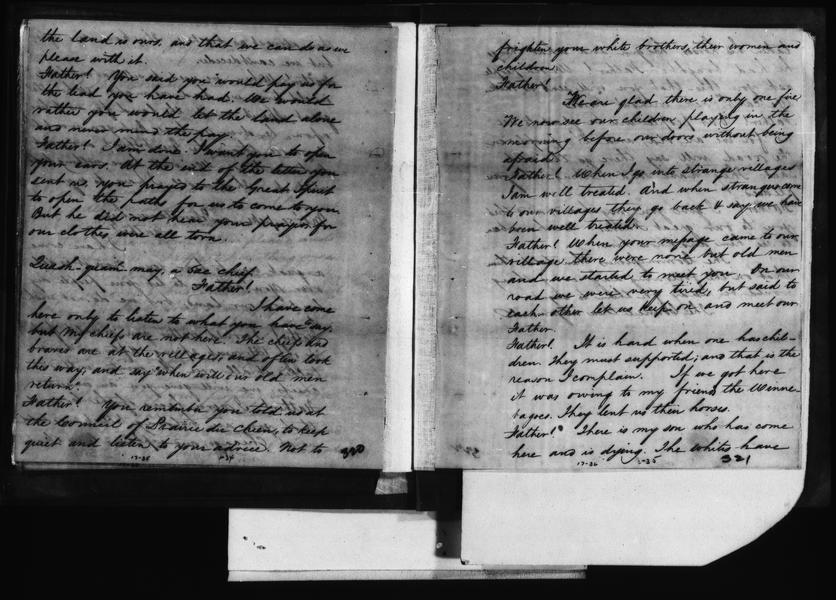 the land is ours, and that we can do as we
please with it.
Father! You said you would pay us for
the lead you have had. We would
rather you would let the land alone
and never mind the pay.
Father! I am done. I want you to open
your ears. At the end of the letter you
sent us, you prayed to the Great Spirit
to open the paths for us to come to you.
But he did not hear your prayer, for
our clothes were all torn.
Quash-quam may, a Sac chief
Father!
I have come
here only to listen to what you have say
but my chiefs are not here. The chiefs and
braves are at the villages, and often look
this way, and say when will our old men
return.
Father! You remember you told us at
the Council of Prairie du Chien, to keep
quiet and listen to your advice. Not to
320
17-35
1-34
frighten your white brothers, their women and
children.
Father!
We are glad there is only one fire
We now see our children playing in the
morning before our doors without being
afraid.
Father! When I go into strange villages
I am well treated. And when strangers come
to our villages they go back & say we have
been well treated.
Father! When your message came to our
village there were none but old men
and we started to meet you. On our
road we were very tired, but said to
each other let us keep on and meet our
Father.
Father! It is hard when one has chil-
dren. They must supported; and that is the
reason I complain. If we got here
it was owing to my friends the Winne-
bagoes. They lent us their horses.
Father! There is my son who has come
here and is dying. The whites have
17-36
1-35
321